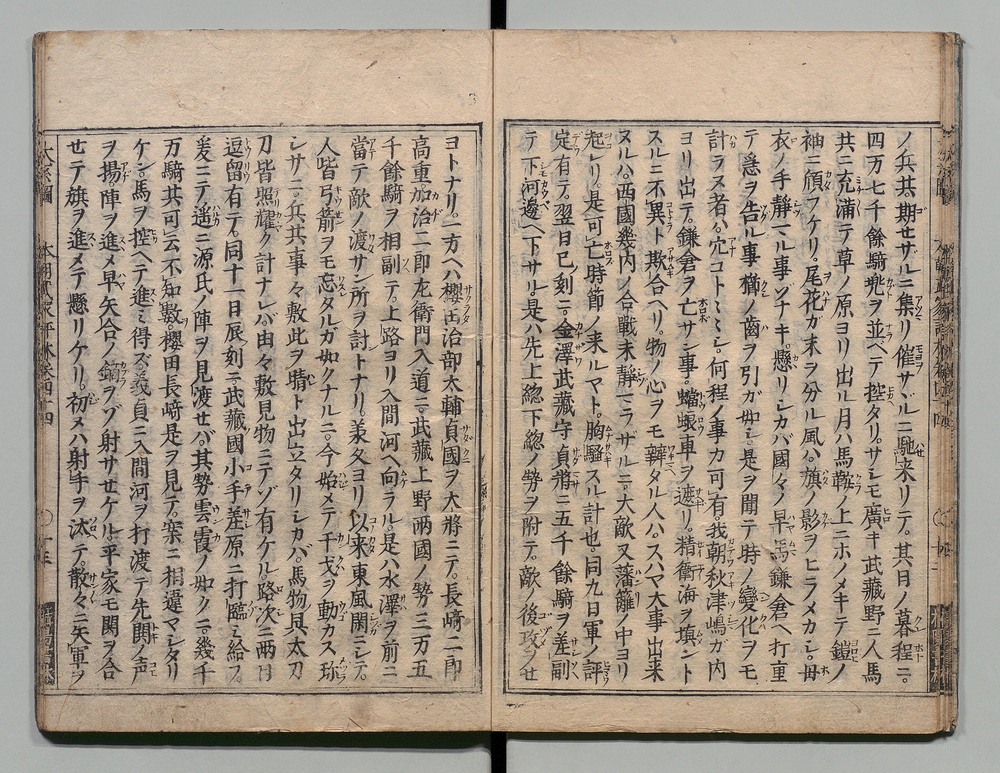 ノ兵共期セザルニ集リ催サヾルニ馳来リテ。其日ノ暮程ニ。
四万七千餘騎兜ヲ並ベテ控タリ。サレモ廣キ武藏野ニ人馬
共ニ充滿テ草ノ原ヨリ出ル月ハ馬鞍ノ上ニホノメキテ鎧ノ
袖ニ傾フケリ。尾花ガ末ヲ分ル風ハ。旗ノ影ヲヒラメカシ。母
衣ノ手靜マル事ゾナキ。懸リシカバ國々ノ早馬鎌倉ヘ打重
テ急ヲ告ル事櫛ノ齒ヲ引ガ如シ。是ヲ聞テ時ノ變化ヲモ
計ラヌ者ハ。穴コト〳〵シ。何程ノ事カ可有我朝秋津嶋ガ内
ヨリ出テ。鎌倉ヲ亡サン事。蟷蜋車ヲ遮リ。精衛海ヲ填ント
スルニ不異ト欺合ヘリ。物ノ心ヲモ辯タル人ハ。スハマ大事出来
ヌルハ。西國畿内ノ合戰未靜マラザルニ。大敵又藩籬ノ中ヨリ
起レリ。是可亡時節ノ来ルマト。胸騷スル計也。同九日軍ノ評
定有テ。翌日巳刻ニ。金澤武藏守貞將ニ五千餘騎ヲ差副
テ下河邊ヘ下サル。是ハ先上総下総ノ勢ヲ附テ。敵ノ後攻ヲせ
ヨトナリ。一方ヘハ櫻田治部大輔貞國ヲ大將ニテ。長﨑二郎
高重加治二郎左衛門入道ニ。武藏上野兩國ノ勢三万五
千餘騎ヲ相副テ。上路ヨリ入間河ヘ向ラル。是ハ水澤ヲ前ニ
當テ敵ノ渡サン所ヲ討トナリ。羕久ヨリ以来東風閑ニシテ。
人皆弓箭ヲモ忘タルガ如クナルニ。今始メテ干戈ヲ動カス珎
シサニ。兵共事々敷此ヲ晴ト出立タリシカバ。馬物具太刀
刀皆照耀ク計ナレバ。由々敷見物ニテゾ有ケル。路次ニ兩日
逗留有テ。同十一日辰刻ニ。武藏國小手差原ニ打臨ミ給フ。
爰ニテ遙ニ源氏ノ陣ヲ見渡せバ。其勢雲霞ノ如クニ。幾千
万騎共可云不知數。櫻田長﨑是ヲ見テ。案ニ相違マシタリ
ケン。馬ヲ控ヘテ進ミ得ズ。義貞ニ入間河ヲ打渡テ先鬨ノ声
ヲ揚陣ヲ進メ早矢合ノ鏑ヲゾ射サセケル。平家モ鬨ヲ合
せテ旗ヲ進メテ懸リケリ。初メハ射手ヲ汰テ。散々ニ矢軍ヲ